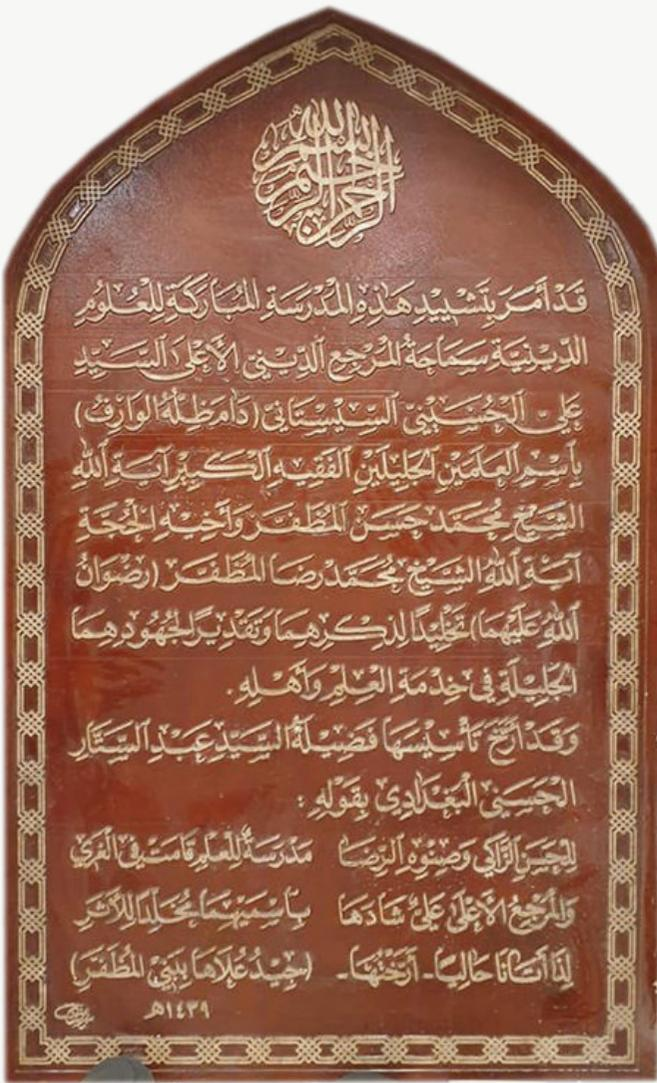 بسم الله الرحمن الرحيم
قَدْ أَمَرَ بِتَشْيِيدِ هَذِهِ الْمَدْرَسَةِ الْمُبَارَكَةِ لِلْعُلُومِ
الدِّينِيَّةِ سَمَاحَةُ الْمَرْجِعِ الدِّينِيِّ الأَعْلَى السَّيِّدِ
عَلِيّ الْحُسَيْنِيّ السِّيسْتَانِي (دَامَ ظِلُّهُ الوَارِفُ)
بِاسْمِ العَلَمَيْنِ الجَلِيلَيْنِ الفَقِيهِ الكَبِيرِ آيَةِ اللهِ
الشَّيْخِ مُحَمَّد حَسَن المُظَفَّر وَأَخِيهِ الحُجَّةِ
آيَةِ اللهِ الشَّيْخِ مُحَمَّد رِضَا المُظَفَّر (رِضْوَانُ
اللهِ عَلَيْهِمَا) تَخْلِيدًا لِذِكْرِهِمَا وَتَقْدِيرًا لِجُهُودِهِمَا
الجَلِيلَةِ فِي خِدْمَةِ العِلْمِ وَأَهْلِهِ.
وَقَدْ أَرَّخَ تَأْسِيسَهَا فَضِيلَةُ السَّيِّدِ عَبْدِ السَّتَّارِ
الحَسَنِي البَغْدَادِي بِقَوْلِهِ :
لِلْحَسَنِ الزَّاكِي وَصِنْوِهِ الرِّضَا مَدْرَسَةٌ لِلْعِلْمِ قَامَتْ فِي الغَرِي
وَالمَرْجِعُ الأَعْلَى عَلِيٌّ شَادَهَا بِاسْمَيْهِمَا مُخَلِّدًا لِلأَثَرِ
لِذَا أَتَانَا حَالِيًا - أَرَّخْتُهَا - (جِيدُ عُلَاهَا بِبَنِي المُظَفَّرِ)
١٤٣٩هـ